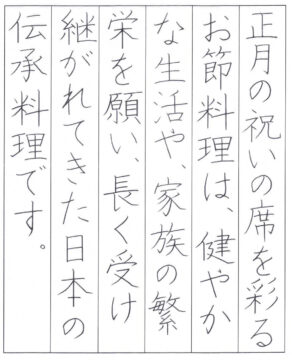 正月の祝いの席を彩る
お節料理は、健やか
な生活や、家族の繁
栄を願い、長く受け
継がれてきた日本の
伝承料理です。